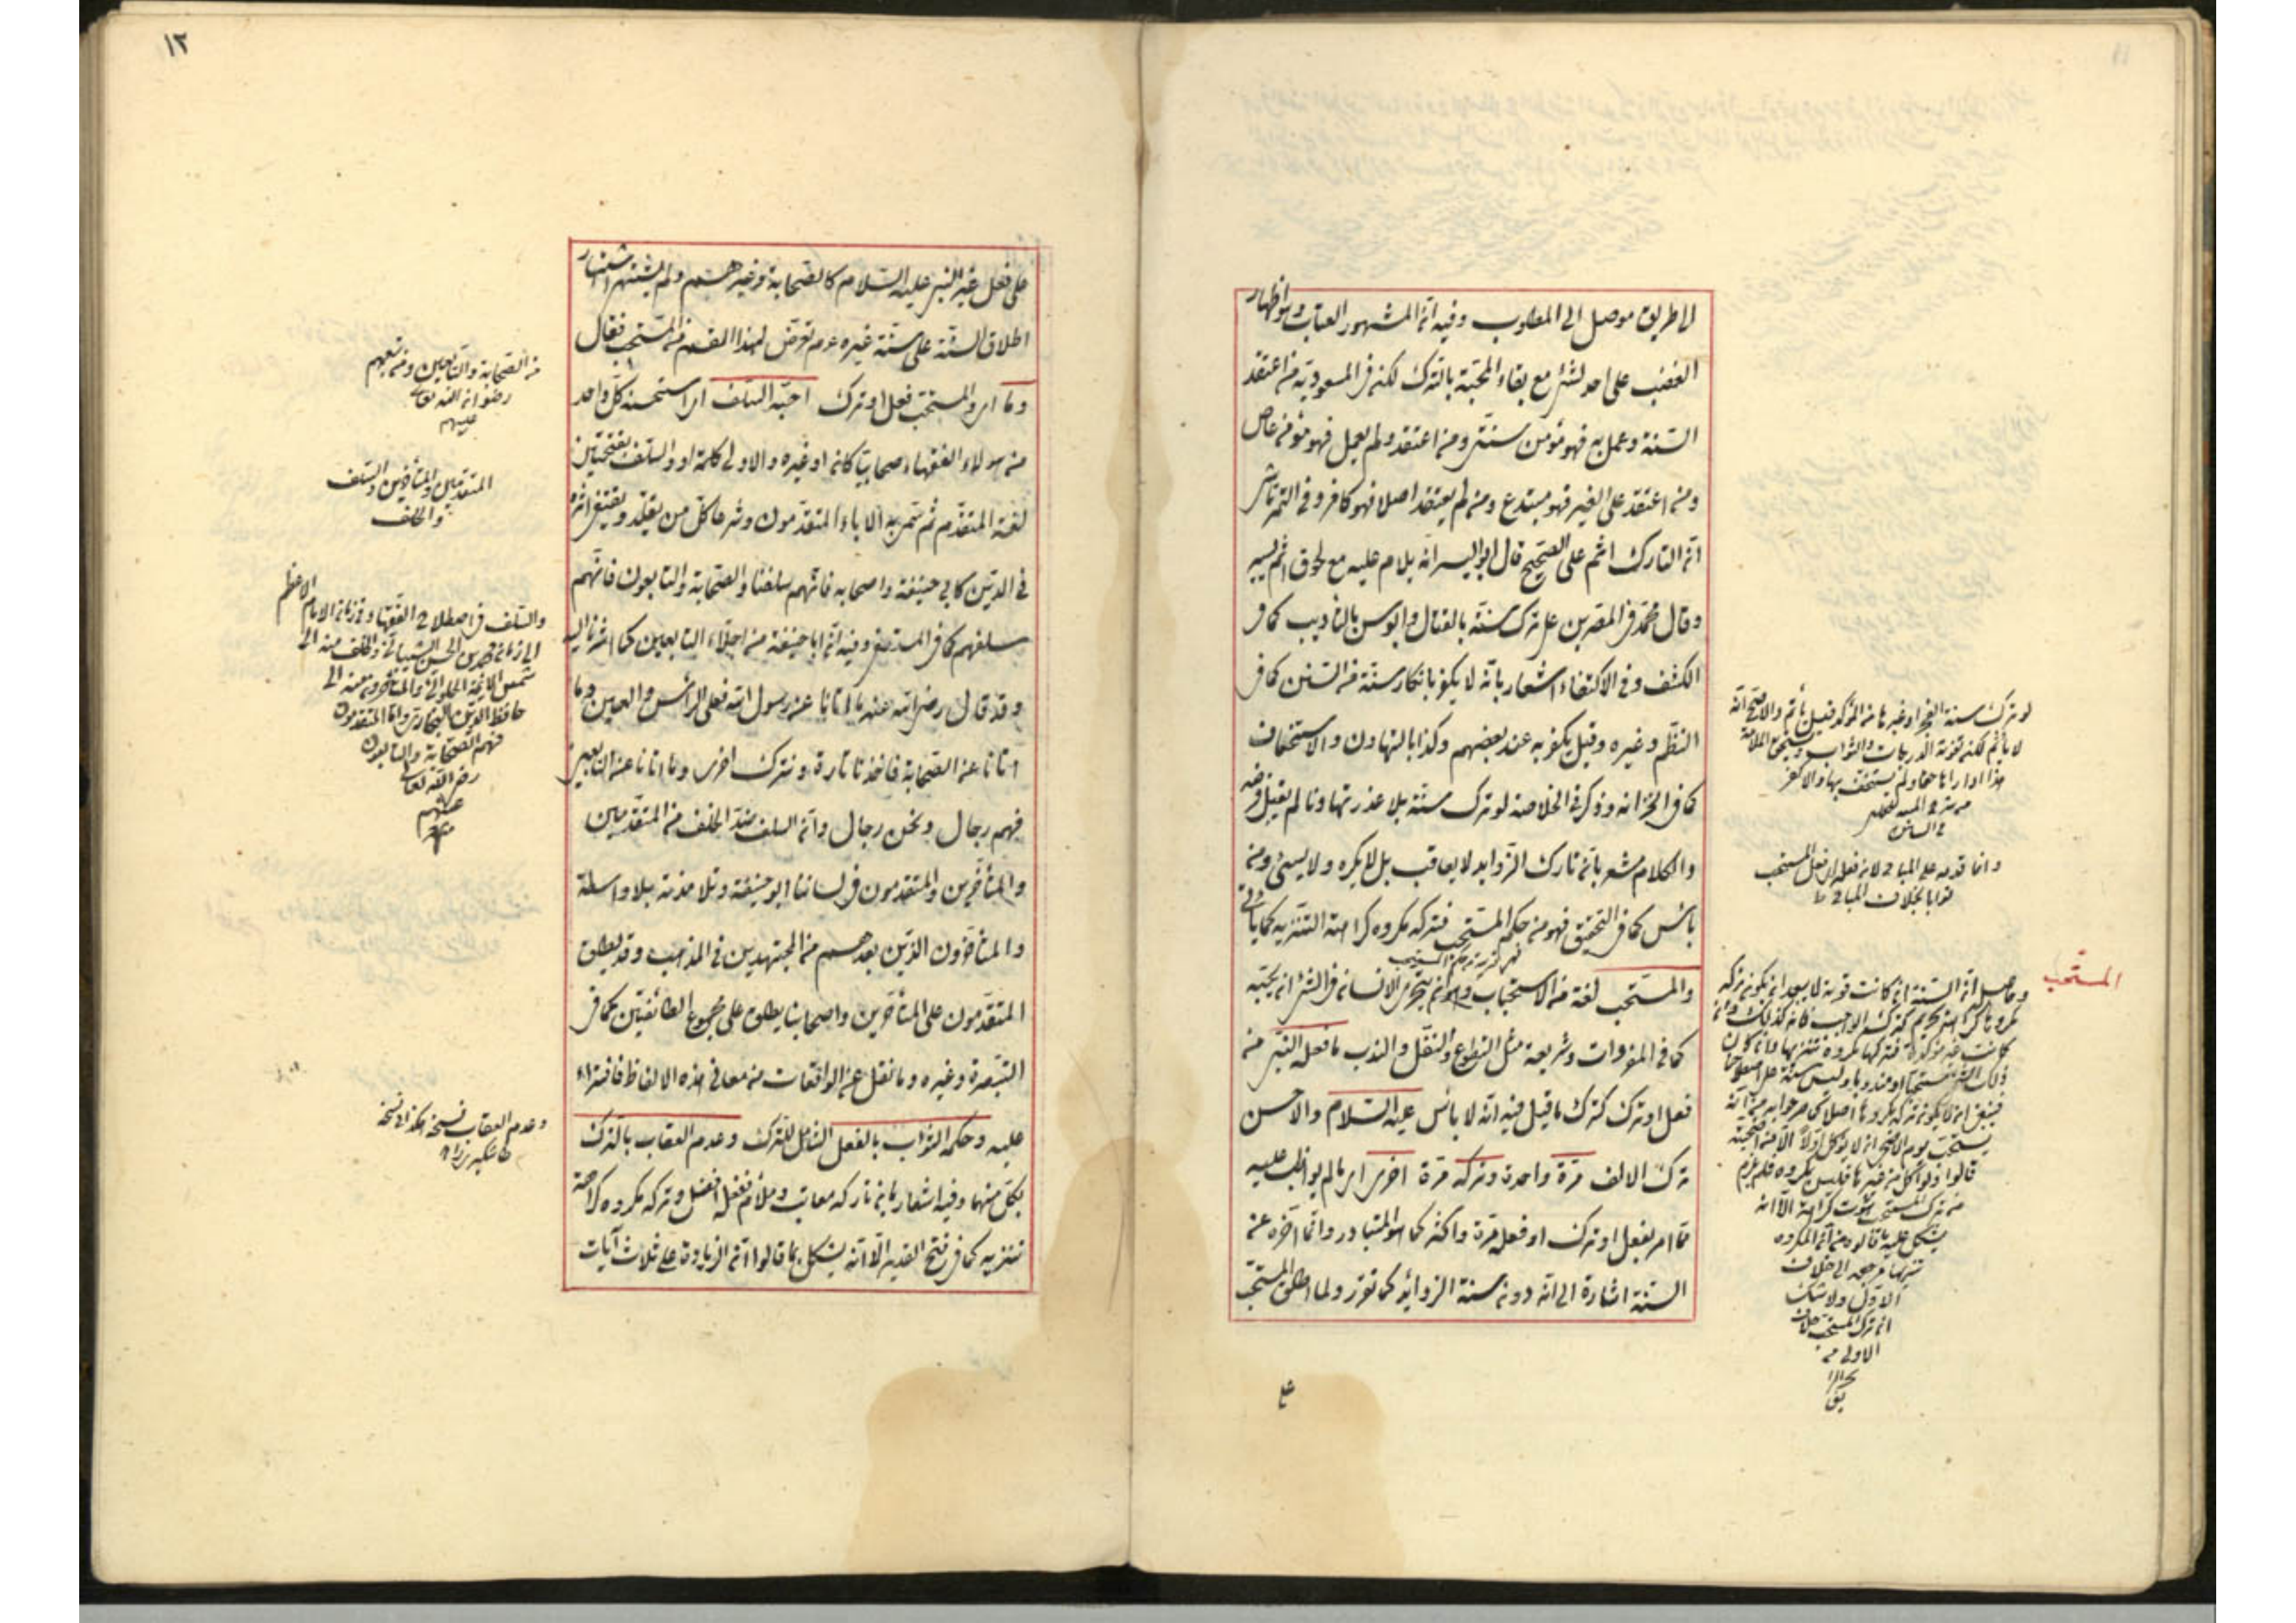 الطريق موصل الى المطلوب وفيه ان المشهور العتاب وهو اظهار
الغضب على احد لشئ مع بقاء المحبة بالترك لكن في المسعودية من اعتقد
السنة وعمل به فهو مؤمن سنى ومن اعتقد ولم يعمل فهو مؤمن عاص
ومن اعتقد على الغير فهو مبتدع ومن لم يعتقد اصلا فهو كافر وفى التمرتاشى
ان التارك اثم على الصحيح قال ابو اليسر انه يلام عليه مع لحوق اثم يسير
وقال محمد فى المصرين على ترك سنة بالقتال وابو يوسف بالتأديب كما فى
الكشف وفى الاكتفاء اشعار بانه لا يكفر بانكار سنة من السنن كما فى
النظم وغيره وقيل يكفر به عند بعضهم وكذا بالتهاون والاستخفاف
كما فى الخزانة وذكر فى الخلاصة لو ترك سنة بلا عذر تهاونا لم يقبل فرضه
والكلام مشعر بان تارك الزوايد لا يعاقب بل لا يكره ولا يسئ ومنه
بأس كما فى التحقيق فهو من حكم المستحب فتركه مكروه كراهة التنزيه كما يأتى
والمستحب لغة من الاستحباب وهو ان يتحرى الانسان فى الشئ ان يحبه
كما فى المفردات وشريعة مثل التطوع والنفل والندب ما فعله النبى منه
فعل او ترك كترك ما قيل فيه انه لا بأس عليه السلام والاحسن
ترك الالف مرة واحدة وتركه مرة اخرى اى ما لم يواظب عليه
مما امر بفعل او ترك او فعله مرة واكثر كما هو المتبادر وانما اخره عن
السنة اشارة الى انه دون سنة الزوائد كما تقرر ولما اطلق المستحب
على
المستحب
لو ترك سنة الفجر او غيرها من المؤكد قيل يأثم والاصح انه
لا يأثم لكنه تفوته الدرجات والثواب ويستحق الملامة
هذا اذا راها حقا ولم يستخف بها والا كفر
وانما قدمه على المباح لانه فعله اى فعل المستحب
ثوابا بخلاف المباح
وحاصله ان السنة ان كانت قوية لا يبعد ان يكون تركه
مكروها كراهة تحريم كترك الواجب فانه كذلك وان
كانت غير مؤكدة فتركها مكروه تنزيها وان كان
ذلك الشئ مستحبا او مندوبا وليس سنة
فينبغى ان لا يكون تركه مكروها اصلا كما صرحوا به من انه
يستحب يوم الاضحى ان لا يؤكل اولا الا من اضحيته
قالوا ولو اكل من غيرها فليس بمكروه فلم يلزم
من ترك المستحب ثبوت كراهة الا انه
يشكل عليه ما قالوه من ان المكروه
تنزيها مرجعه الى خلاف
الاولى ولا شك
ان ترك المستحب خلاف
الاولى
١٢
على فعل غير النبى عليه السلام كالصحابة وغيرهم ولم يشتهر اشتهار
اطلاق السنة على سنة غيره عدم تعرض لهذا القسم من المستحب فقال
وما اى والمستحب فعل او ترك احبه السلف اى استحسنه كل واحد
من هولاء الفقهاء صحابيا كان او غيره والاولى كلمة او والسلف بفتحتين
لغة المتقدم ثم سمى به الاباء المتقدمون وشرعا كل من يقلد ويقتفى اثره
فى الدين كابى حنيفة واصحابه فانهم سلفنا والصحابة والتابعون فانهم
سلفهم كما فى المستصفى وفيه ان ابا حنيفة من اجلاء التابعين كما اشرنا اليه
وقد قال رضى الله عنه ما اتانا عن رسول الله فعلى الرأس والعين وما
اتانا عن الصحابة فاخذنا تارة ونترك اخرى وما اتانا عن التابعين
فهم رجال ونحن رجال وان السلف ضد الخلف من المتقدمين
والمتأخرين والمتقدمون فى لساننا ابو حنيفة وتلامذته بلا واسطة
والمتأخرون الذين بعدهم من المجتهدين فى المذهب وقد يطلق
المتقدمون على المتأخرين واصحابنا يطلق على مجموع الطائفتين كما فى
التبصرة وغيره وما نقل عن الواقعات من معانى هذه الالفاظ فافتراء
عليه وحكمه الثواب بالفعل الشامل للترك وعدم العقاب بالترك
بكل منهما وفيه اشعار بان تاركه معاتب وملام ففعله افضل وتركه مكروه كراهة
تنزيه كما فى فتح القدير الا انه يشكل بما قالوا ان الزيادة على ثلاث آيات
من الصحابة والتابعين ومن تبعهم
رضوان الله تعالى
عليهم
المتقدمين والمتأخرين والسلف
والخلف
والسلف فى اصطلاح الفقهاء من زمان الامام الاعظم
الى زمان محمد بن الحسن الشيبانى والخلف منه الى
شمس الائمة الحلوانى والمتأخرون منه الى
حافظ الدين البخارى واما المتقدمون
فهم الصحابة والتابعون
رضى الله تعالى
عنهم
وعدم العقاب نسخة